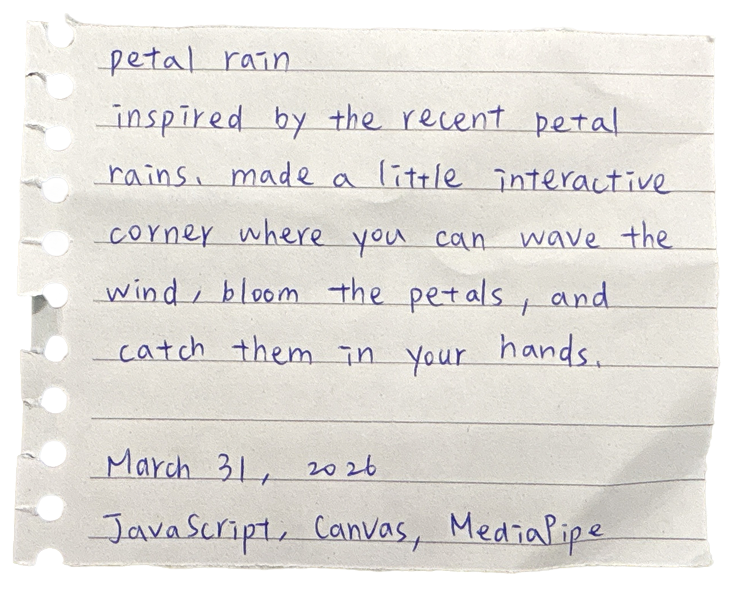 petal rain
inspired by the recent petal
rains. made a little interactive
corner where you can wave the
wind, bloom the petals, and
catch them in your hands.
March 31, 2026
JavaScript, Canvas, MediaPipe